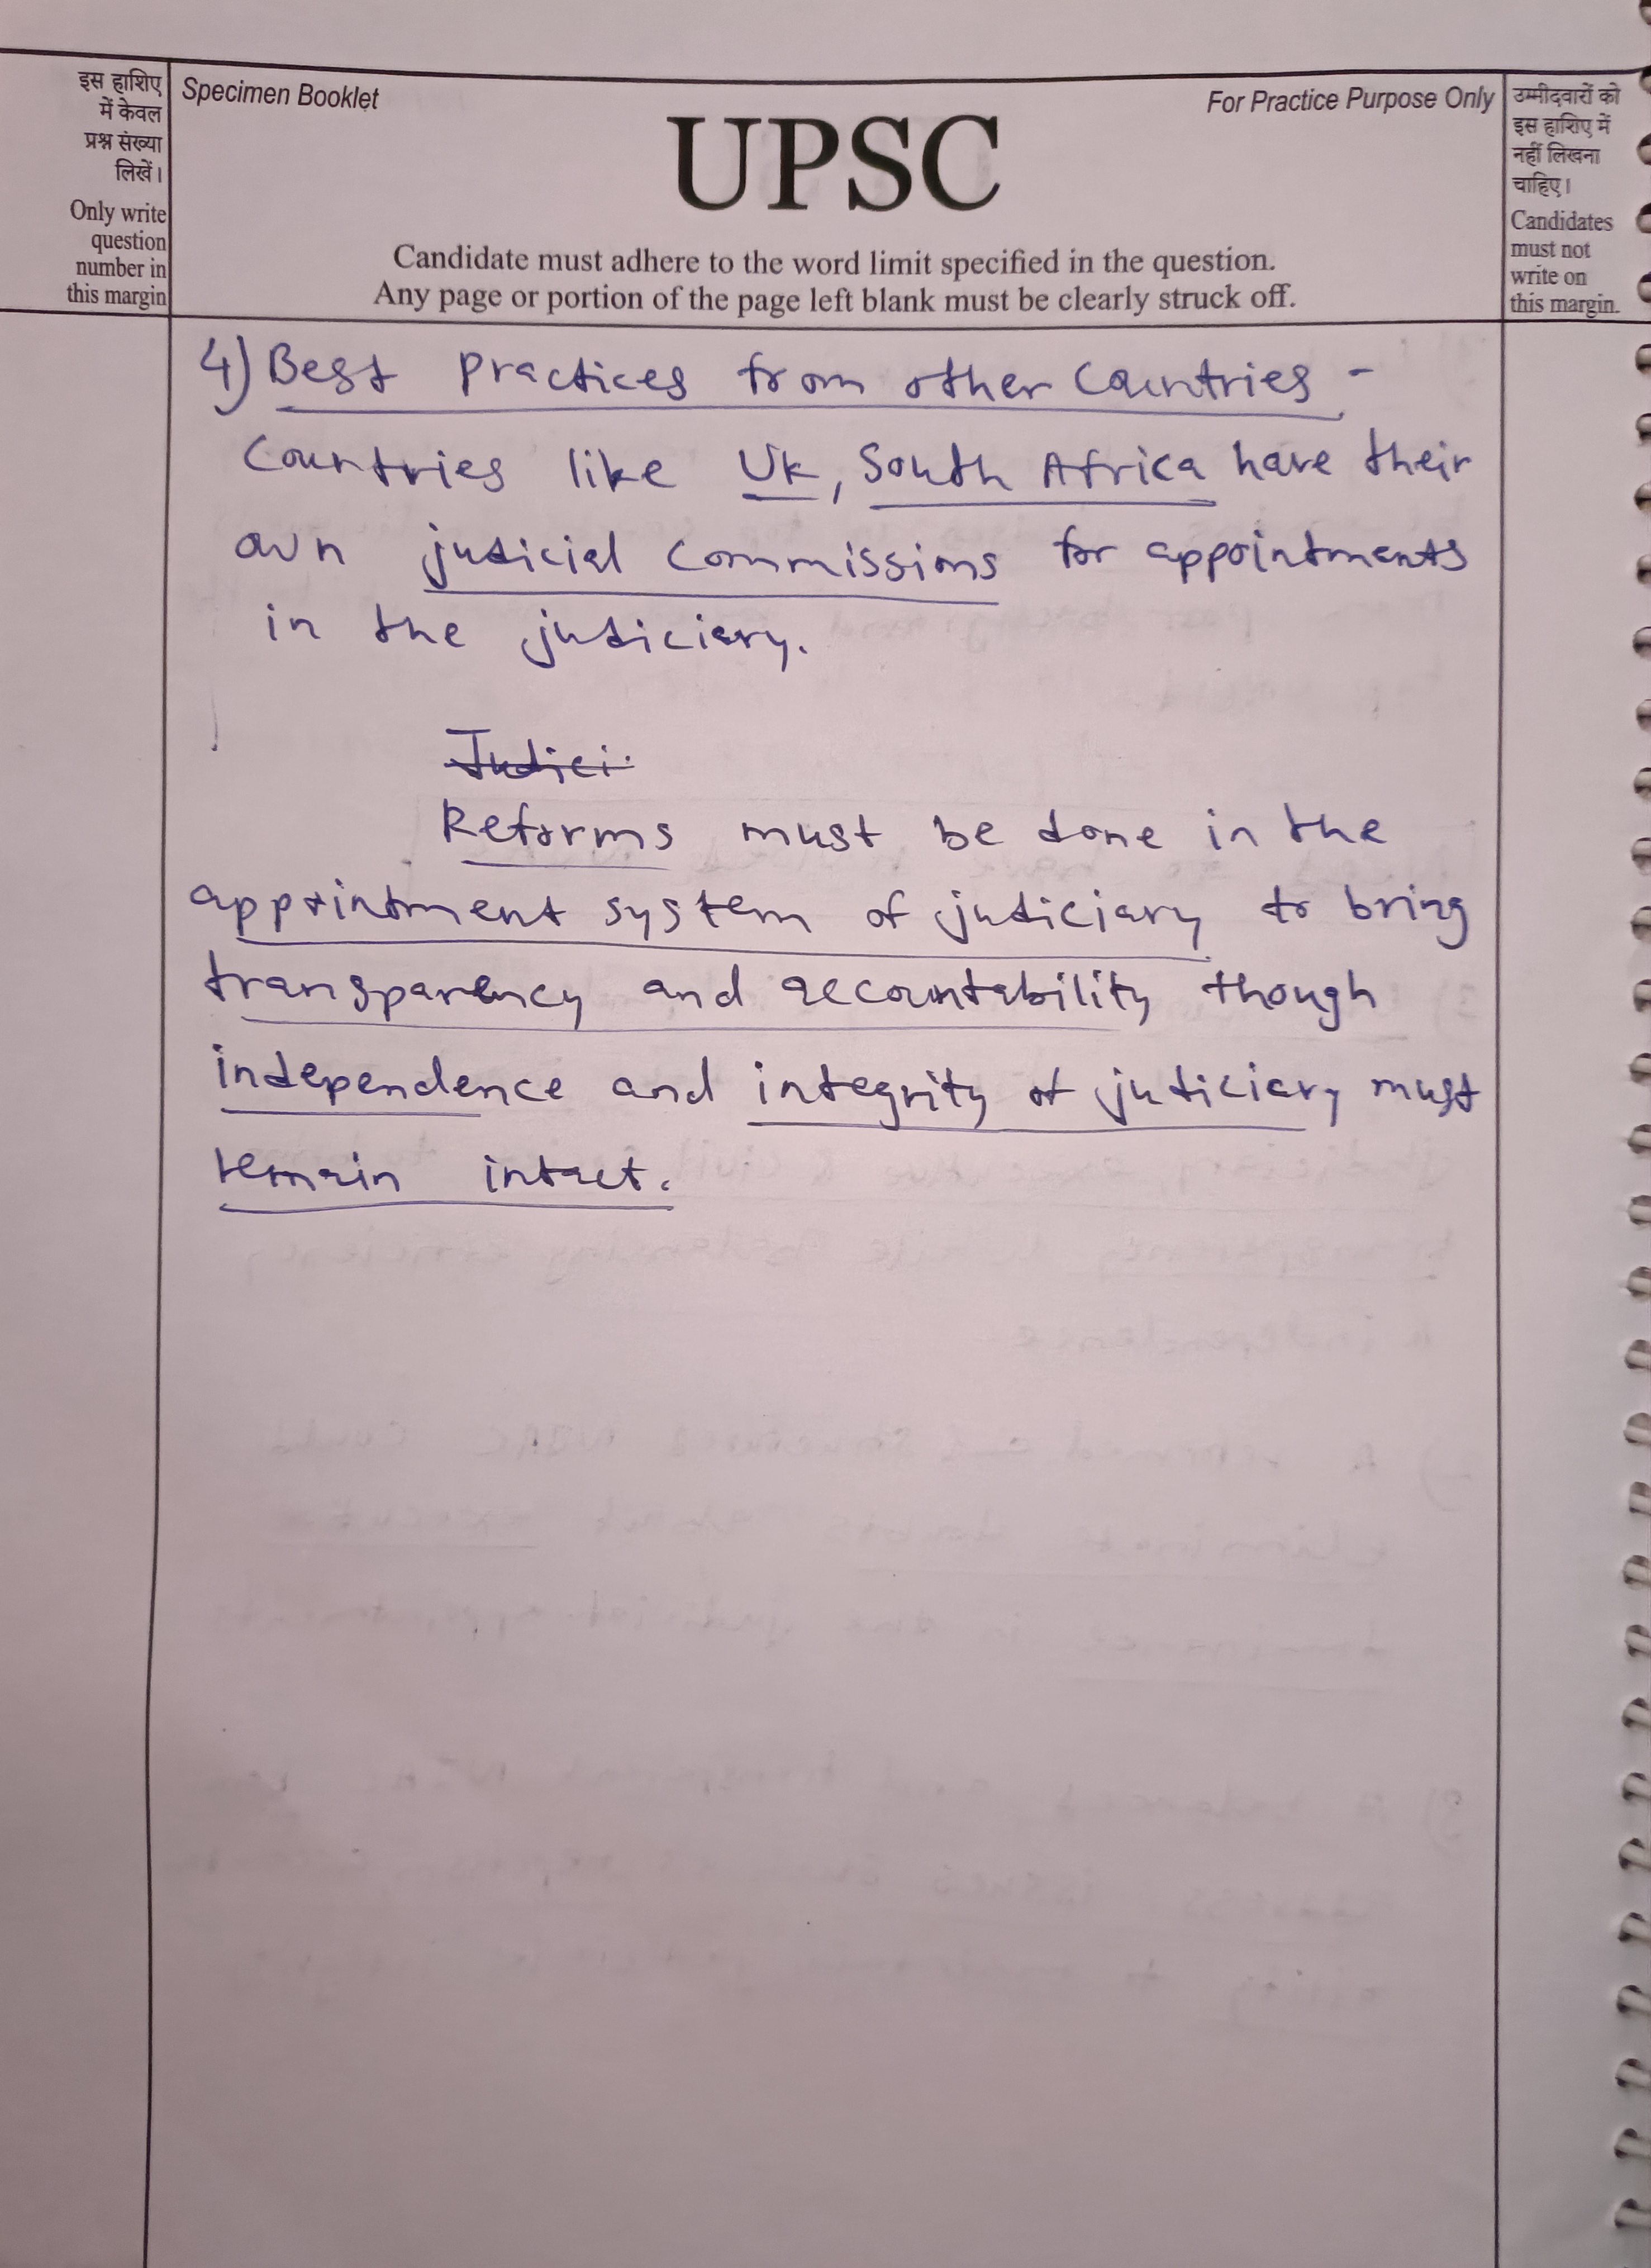 इस हाशिए
में केवल
प्रश्न संख्या
लिखें।
Only write
question
number in
this margin
Specimen Booklet
For Practice Purpose Only
UPSC
Candidate must adhere to the word limit specified in the question.
Any page or portion of the page left blank must be clearly struck off.
उम्मीदवारों को
इस हाशिए में
नहीं लिखना
चाहिए।
Candidates
must not
write on
this margin.
4) Best Practices from other Countries -
Countries like UK, South Africa have their
own judicial commissions for appointments
in the judiciary.
Judici
Reforms must be done in the
appointment system of judiciary to bring
transparency and accountability though
independence and integrity of judiciary must
remain intact.